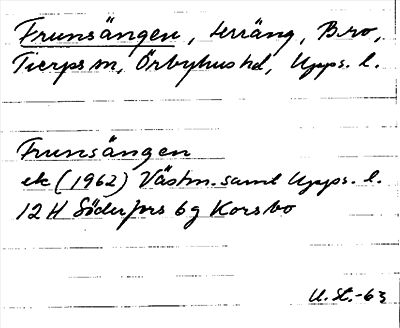 Frunsängen, terräng, Bro,
Tierps sn, Örbyhus hd, Upps. l.
Frunsängen
ek (1962) Västm. samt Upps. l.
12 H Söderfors 6g Korsbo
U. St. -63